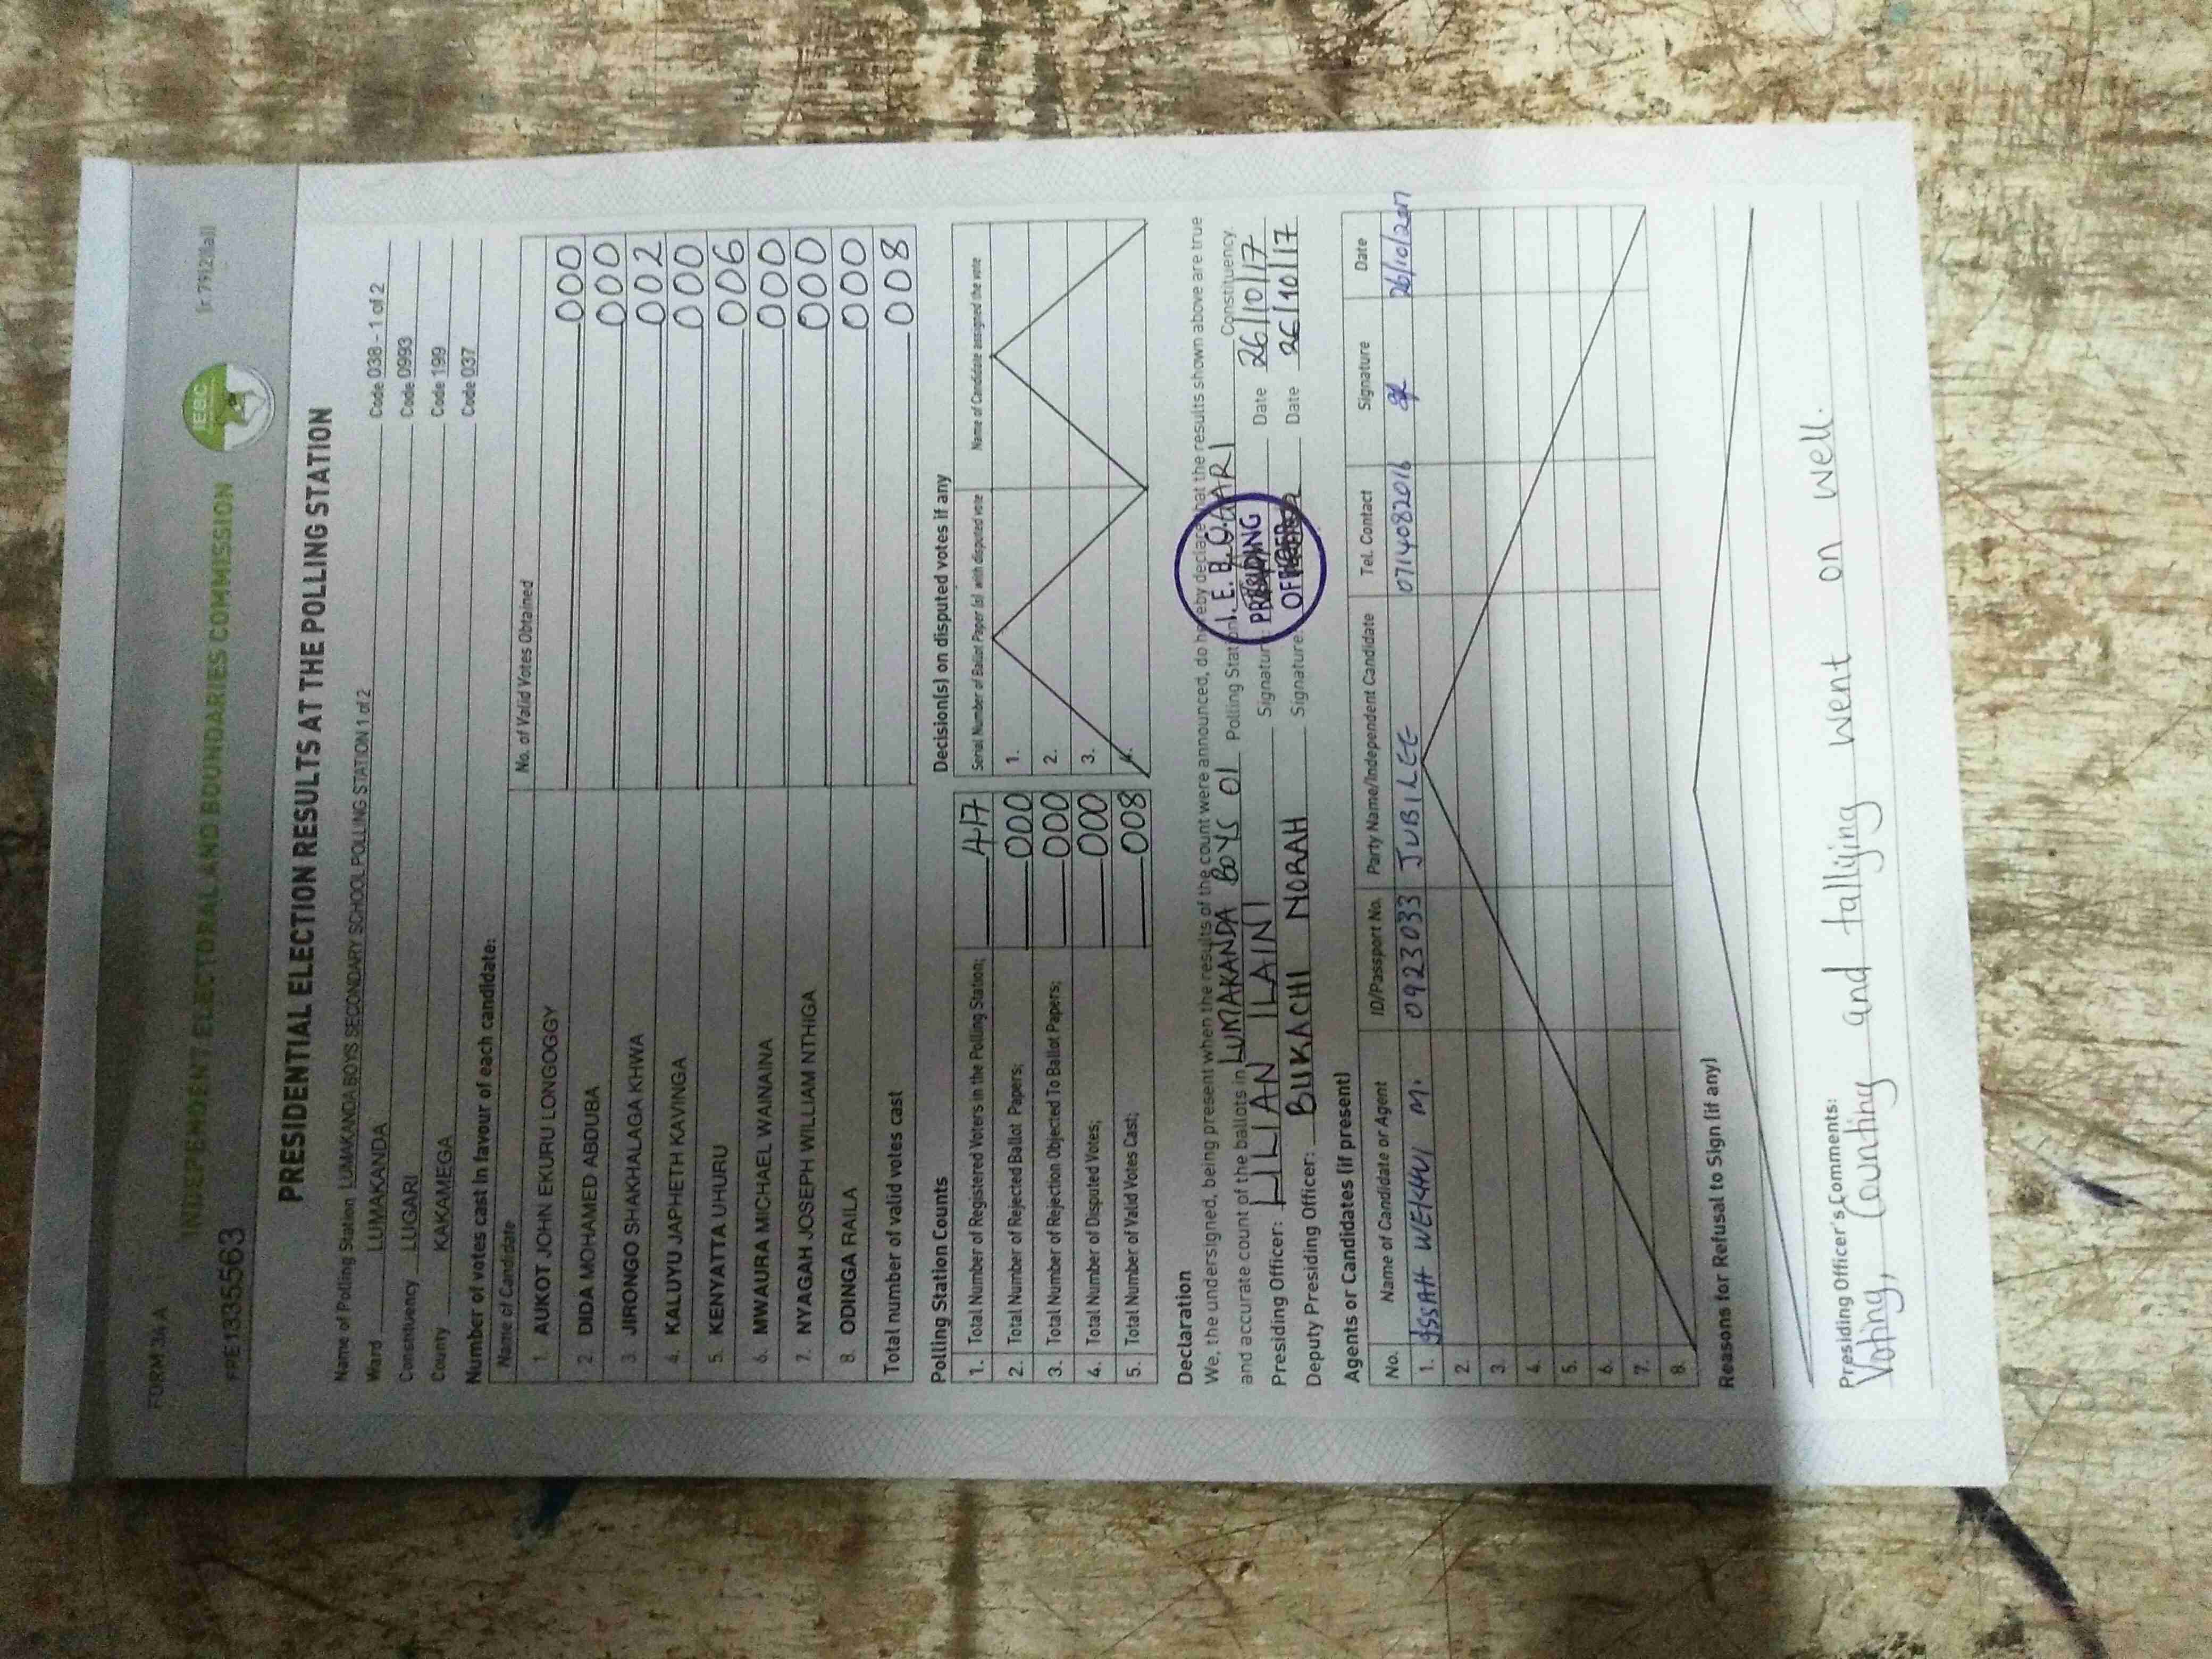 FORM 34 A
INDEPENDENT ELECTORAL AND BOUNDARIES COMMISSION
IEBC
PRE1335563
PRESIDENTIAL ELECTION RESULTS AT THE POLLING STATION
Name of Polling Station LUMAKANDA BOYS SECONDARY SCHOOL POLLING STATION 1 of 2 Code 038 - 1 of 2
Ward LUMAKANDA Code 0993
Constituency LUGARI Code 199
County KAKAMEGA Code 037
Number of votes cast in favour of each candidate:
Name of Candidate No. of Valid Votes Obtained
1. AUKOT JOHN EKURU LONGOGGY 000
2. DIDA MOHAMED ABDUBA 000
3. JIRONGO SHAKHALAGA KHWA 002
4. KALUYU JAPHETH KAVINGA 000
5. KENYATTA UHURU 006
6. MWAURA MICHAEL WAINAINA 000
7. NYAGAH JOSEPH WILLIAM NTHIGA 000
8. ODINGA RAILA 000
Total number of valid votes cast 008
Polling Station Counts
1. Total Number of Registered Voters in the Polling Station; 417
2. Total Number of Rejected Ballot Papers; 000
3. Total Number of Rejection Objected To Ballot Papers; 000
4. Total Number of Disputed Votes; 000
5. Total Number of Valid Votes Cast; 008
Decision(s) on disputed votes if any
Serial Number of Ballot Paper (s) with disputed vote Name of Candidate assigned the vote
1.
2.
3.
4.
Declaration
We, the undersigned, being present when the results of the count were announced, do hereby declare that the results shown above are true
and accurate count of the ballots in LUMAKANDA BOYS 01 Polling Station LUGARI Constituency.
Presiding Officer: LILIAN ILAINI Signature Date 26/10/17
Deputy Presiding Officer: BUKACHI NORAH Signature Date 26/10/17
I. E. B. C.
PRESIDING
OFFICER
Agents or Candidates (if present)
No. Name of Candidate or Agent ID/Passport No. Party Name/Independent Candidate Tel. Contact Signature Date
1. M. 0923033 JUBILEE 0714082016 26/10/2017
2.
3.
4.
5.
6.
7.
8.
Reasons for Refusal to Sign (if any)
Presiding Officer's Comments:
Voting, Counting and tallying went on well.